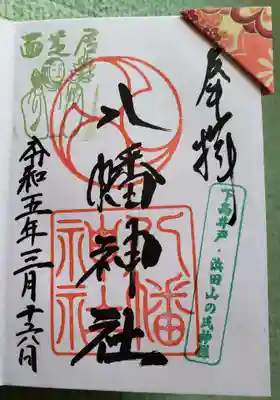 奉拝
下高井戸・浜田山の氏神様
八幡神社
八幡
神社
令和五年三月十六日